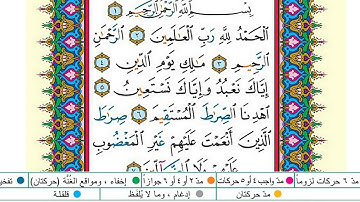 بِسْمِ اللَّهِ الرَّحْمَٰنِ الرَّحِيمِ
الْحَمْدُ لِلَّهِ رَبِّ الْعَالَمِينَ ٢ الرَّحْمَٰنِ
الرَّحِيمِ ٣ مَالِكِ يَوْمِ الدِّينِ ٤
إِيَّاكَ نَعْبُدُ وَإِيَّاكَ نَسْتَعِينُ ٥
اهْدِنَا الصِّرَاطَ الْمُسْتَقِيمَ ٦ صِرَاطَ
الَّذِينَ أَنْعَمْتَ عَلَيْهِمْ غَيْرِ الْمَغْضُوبِ
عَلَيْهِمْ وَلَا الضَّالِّينَ ٧
مدّ ٦ حركات لزوماً مدّ ٢ أو ٤ أو ٦ جوازاً إخفاء، ومواقع الغُنَّة (حركتان) تفخيم
مدّ واجب ٤ أو ٥ حركات مدّ حركتان إدغام، وما لا يُلفَظ قلقلة